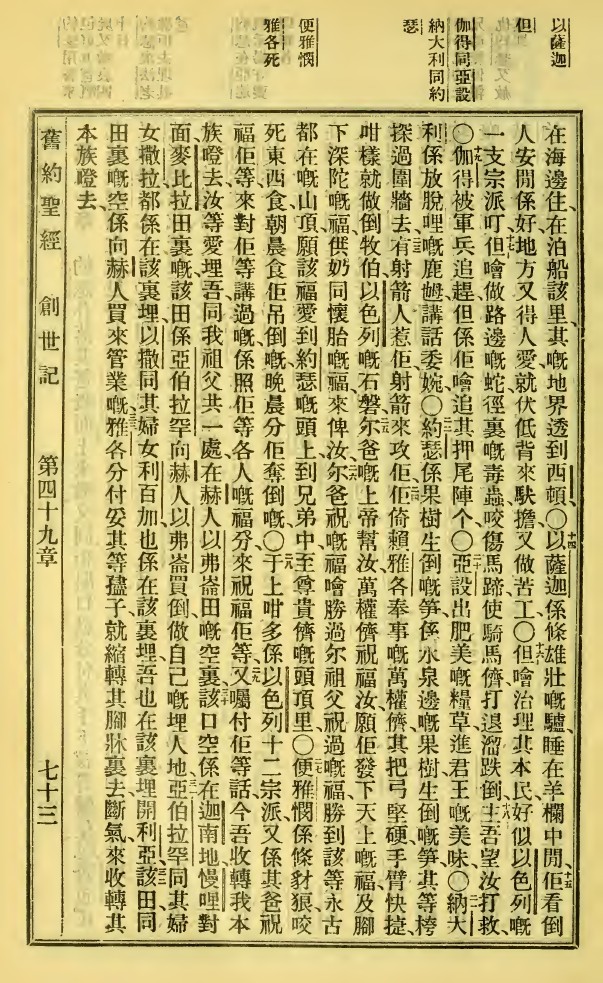 以薩迦
但
伽得同亞設
納大利同約
瑟
便雅憫
雅各死
在海邊住、在泊船該里、其嘅地界透到西頓、〇十四以薩迦係條雄壯嘅驢、睡在羊欄中閒、十五佢看倒
人安閒係好、地方又得人愛、就伏低背來馱擔、又做苦工、〇十六但噲治理其本民、好似以色列嘅
一支宗派、十七叮但噲做路邊嘅蛇、徑裏嘅毒蟲、咬傷馬蹄、使騎馬儕打退溜跌倒、十八主吾望汝打救、
〇十九伽得被軍兵追趕、但係佢噲追其押尾陣个、〇二十亞設出肥美嘅糧草、進君王嘅美味、〇二一納大
利係放脫哩嘅鹿𪊽、講話委婉、〇二二約瑟係果樹生倒嘅笋、係水泉邊嘅果樹生倒嘅笋、其等桍
探過圍牆去、二三有射箭人惹佢、射箭來攻佢、二四佢倚賴雅各奉事嘅萬權儕、其把弓堅硬、手臂快捷、
咁樣就做倒牧伯、以色列嘅石磐、二五尔爸嘅上帝幫汝、萬權儕祝福汝、願佢發下天上嘅福、及腳
下深陀嘅福、供奶同懷胎嘅福來俾汝、二六尔爸祝嘅福、噲勝過尔祖父祝過嘅福、勝到該等永古
都在嘅山頂、願該福愛到約瑟嘅頭上、到兄弟中至尊貴儕嘅頭頂里、〇二七便雅憫係條豺狼、咬
死東西食、朝晨食佢吊倒嘅、晚晨分佢奪倒嘅、〇二八于上咁多係以色列十二宗派、又係其爸祝
福佢等、來對佢等講過嘅、係照佢等各人嘅福分來祝福佢等、二九又囑付佢等話、今吾收轉我本
族嶝去、汝等愛埋吾同我祖父共一處、在赫人以弗崙田嘅空裏、三十該口空係在迦南地慢哩對
面麥比拉田裏嘅、該田係亞伯拉罕向赫人以弗崙買倒、做自己嘅埋人地、三一亞伯拉罕同其婦
女撒拉都係在該裏埋、以撒同其婦女利百加也係在該裏埋、吾也在該裏埋開利亞、三二該田同
田裏嘅空、係向赫人買來管業嘅、三三雅各分付妥其等孻子、就縮轉其腳牀裏去斷氣、來收轉其
本族嶝去、
舊約聖經　創世記　第四十九章　七十三